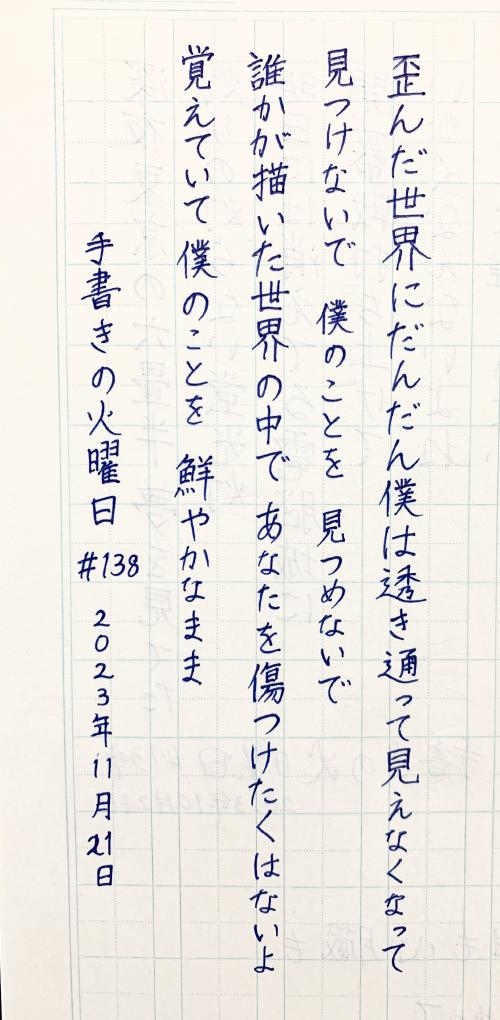 歪んだ世界にだんだん僕は透き通って見えなくなって
見つけないで 僕のことを 見つめないで
誰かが描いた世界の中で あなたを傷つけたくはないよ
覚えていて 僕のことを 鮮やかなまま
手書きの火曜日 #138 2023年11月21日